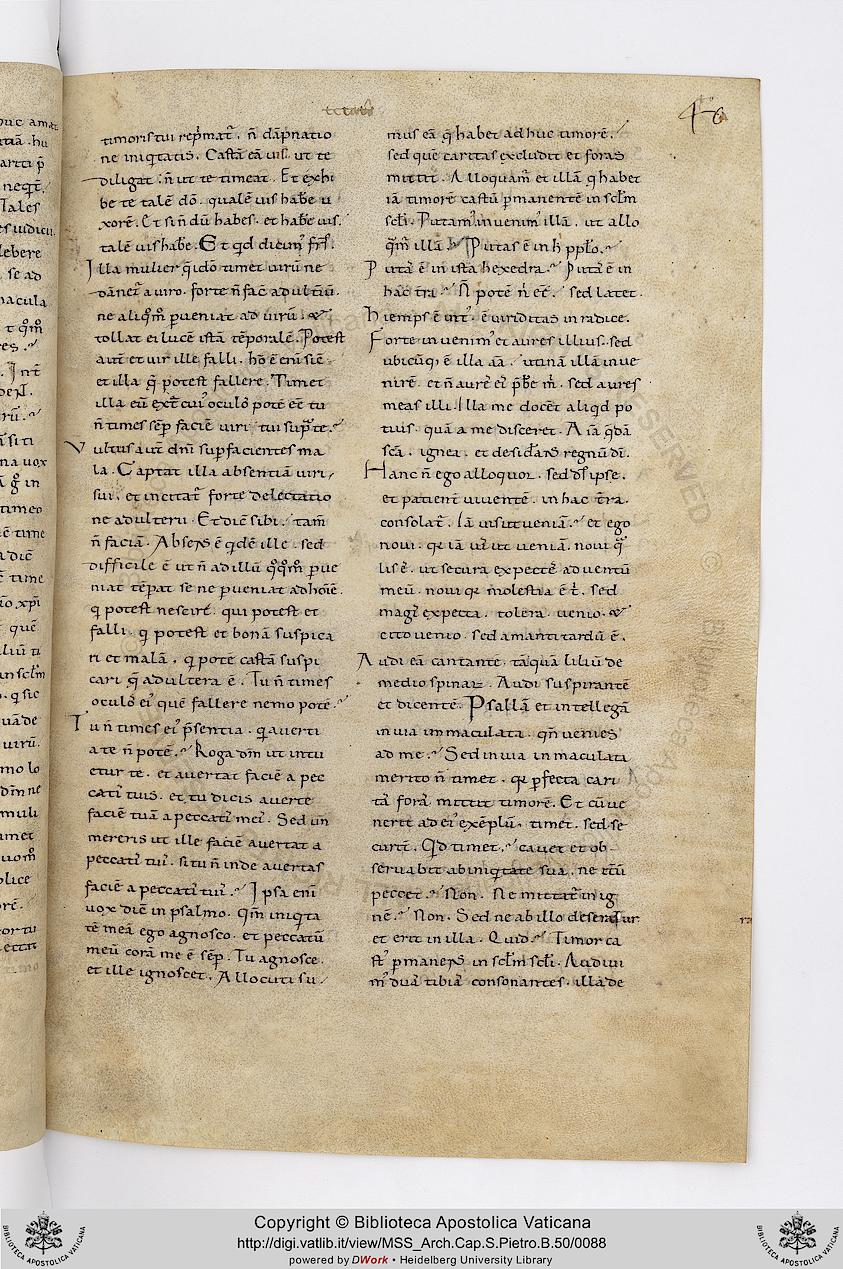 timoris tui rep̄mat᷑. ñ dãpnatio
ne iniq̇tatis. Castã eã uis. ut te
diligat. ñ ut te timeat. Et exhi
be te talẽ dõ. qualẽ uis hab̄e u
xorẽ. Et si ñdũ habes. et hab̄e uis.
talẽ uis hab̄e. Et qd dicim᷒ fr̄s.
Illa mulier q̇dẽ timet uirũ ne
dãnet᷑ a uiro. forte ñ fac̄ adult̄iũ.
ne aliq̊m̄ p̱ueniat ad uirũ. &
tollat ei lucẽ istã tẽporalẽ. Potest
aut̄ et uir ille falli. hõ ẽ eni sic̄
et illa q̄ potest fallere. Timet
illa eũ ext̄ cui᷒ oculos potẽ eẽ tu
ñ times sẽp faciẽ uiri tui sup̱ te.
Vultus aut̄ dñi sup̱ facientes ma
la. Captat illa absentiã uiri
sui. et incitat᷑ forte delectatio
ne adulterii. Et dic̄ sibi. tam̄
ñ faciã. Absens ẽ q̇dẽ ille. sed
difficile ẽ ut ñ ad illũ q̊q̊m̄ p̱ue
niat tẽpat se ne p̱ueniat ad hoĩẽ.
q̇ potest nescire. qui potest et
falli. q̇ potest et bonã suspica
ri et malã. q̇ potẽ castã suspi
cari q̄ adultera ẽ. Tu ñ times
oculos ei᷒ quẽ fallere nemo potẽ.
Tu ñ times ei᷒ p̄sentia. q̇ auerti
a te ñ potẽ. Roga dñm ut intu
etur te. et auertat faciẽ a pec
catis tuis. et tu dicis auerte
faciẽ tuã a peccatis meis. Sed uñ
mereris ut ille faciẽ auertat a
peccatis tuis. si tu ñ inde auertas
faciẽ a peccatis tuis. Ipsa eni
uox dic̄ in psalmo. Qm̄ iniqta
tẽ meã ego agnosco. et peccatũ
meũ corã me ẽ sẽp. Tu agnosce.
et ille ignoscet. Allocuti su
mus eã q̄ habet adhuc timorẽ.
sed que caritas excludit et foras
mittit. Alloquam᷑ et illã q̄ habet
iã timorẽ castũ p̱manentẽ in sclm̄
scli. Putam᷒ inuenim᷒ illã. ut allo
q̇m̄ illã. Putas ẽ in h̄ pplo.
Putas ẽ in ista hexedra. Putas ẽ in
hac tr̄a. Ñ potẽ ñ eẽ. sed latet.
Hiemps ẽ int᷒. ẽ uiriditas in radice.
Forte inuenim᷒ et aures illius. sed
ubicũq; ẽ illa aĩa. utinã illã inue
nirẽ. et ñ aurẽ ei᷒ p̄bẽ m̄. sed aures
meas illi. Illa me docẽt aliqd po
tius. quã a me disceret. Aĩa q̇dã
sc̄a. ignea. et desiderans regnũ dĩ.
Hanc ñ ego alloquor. sed d̄s ipse.
et patient᷑ uiuentẽ. in hac tr̄a.
consolat᷑. Iã uis ut ueniã. et ego
noui. q̇ iã uis ut ueniã. noui q̄
lis es. ut secura expectes aduentũ
meũ. noui q̇ molestia ẽ t̄. sed
magis expecta. tolera. uenio. &
cito uenio. sed amanti tardũ ẽ.
Audi eã cantantẽ. tãquã liliũ de
medio spinarꝝ. Audi suspirantẽ
et dicentẽ. Psallã et intellegã
in uia inmaculata. qñ uenies
ad me. Sed in uia inmaculata
merito ñ timet. q̇ p̱fecta cari
tas foras mittit timorẽ. Et cũ ue
nerit ad ei᷒ exẽplũ. timet. sed se
cura. Qd timet. cauet et ob
seruabit ab iniq̇tate sua. ne it̄ũ
peccet. Non. Ne mittat᷑ in ig
nẽ. Non. Sed ne ab illo deseratur.
et erit in illa. Quid. Timor ca
st᷒ p̱manens in sclm̄ scli. Audiui
m᷒ duas tibias consonantes. illa de
Copyright © Biblioteca Apostolica Vaticana
http://digi.vatlib.it/view/MSS_Arch.Cap.S.Pietro.B.50/0088
powered by DWork • Heidelberg University Library